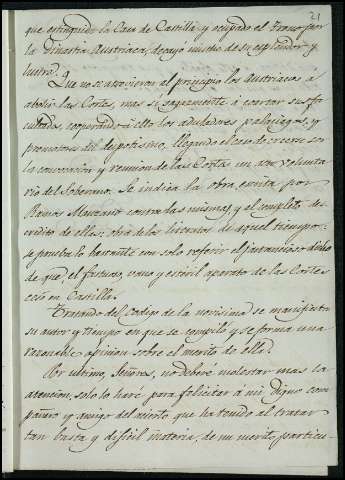 21
que extinguida la Casa de Castilla y ocupado el Trono por
la Dinastia Austriaca, decayó mucho de su esplendor y
lustre.
Que no se atrevieron al principio los Austriacos á
abolir las Cortes, mas si sagazmente á coartar sus fa
cultades, cooperando á ello los aduladores palaciegos, y
promotores del despotismo, llegando el caso de creerse ser
la convocacion y reunion de las Cortes un acto volunta
rio del Soberano. Se indica la obra, escrita por
Ramos Manzano contra las mismas, y el completo des-
credito de ellas, obra de los literatos de aquel tiempo:
se prueba lo bastante con solo referir el jactancioso dicho
de que el fastuoso, vano y estéril aparato de las Cortes
cesó en Castilla.
Tratando del Codigo de la novisima se manifiesta
su autor y tiempo en que se compiló y se forma una
razonable opinion sobre el merito de ella.
Por ultimo, Señores, no deberé molestar mas la
atencion, solo lo haré para felicitar á mi digno com
pañero y amigo del acierto que ha tenido al tratar
tan basta y dificil materia, de un merito particu-